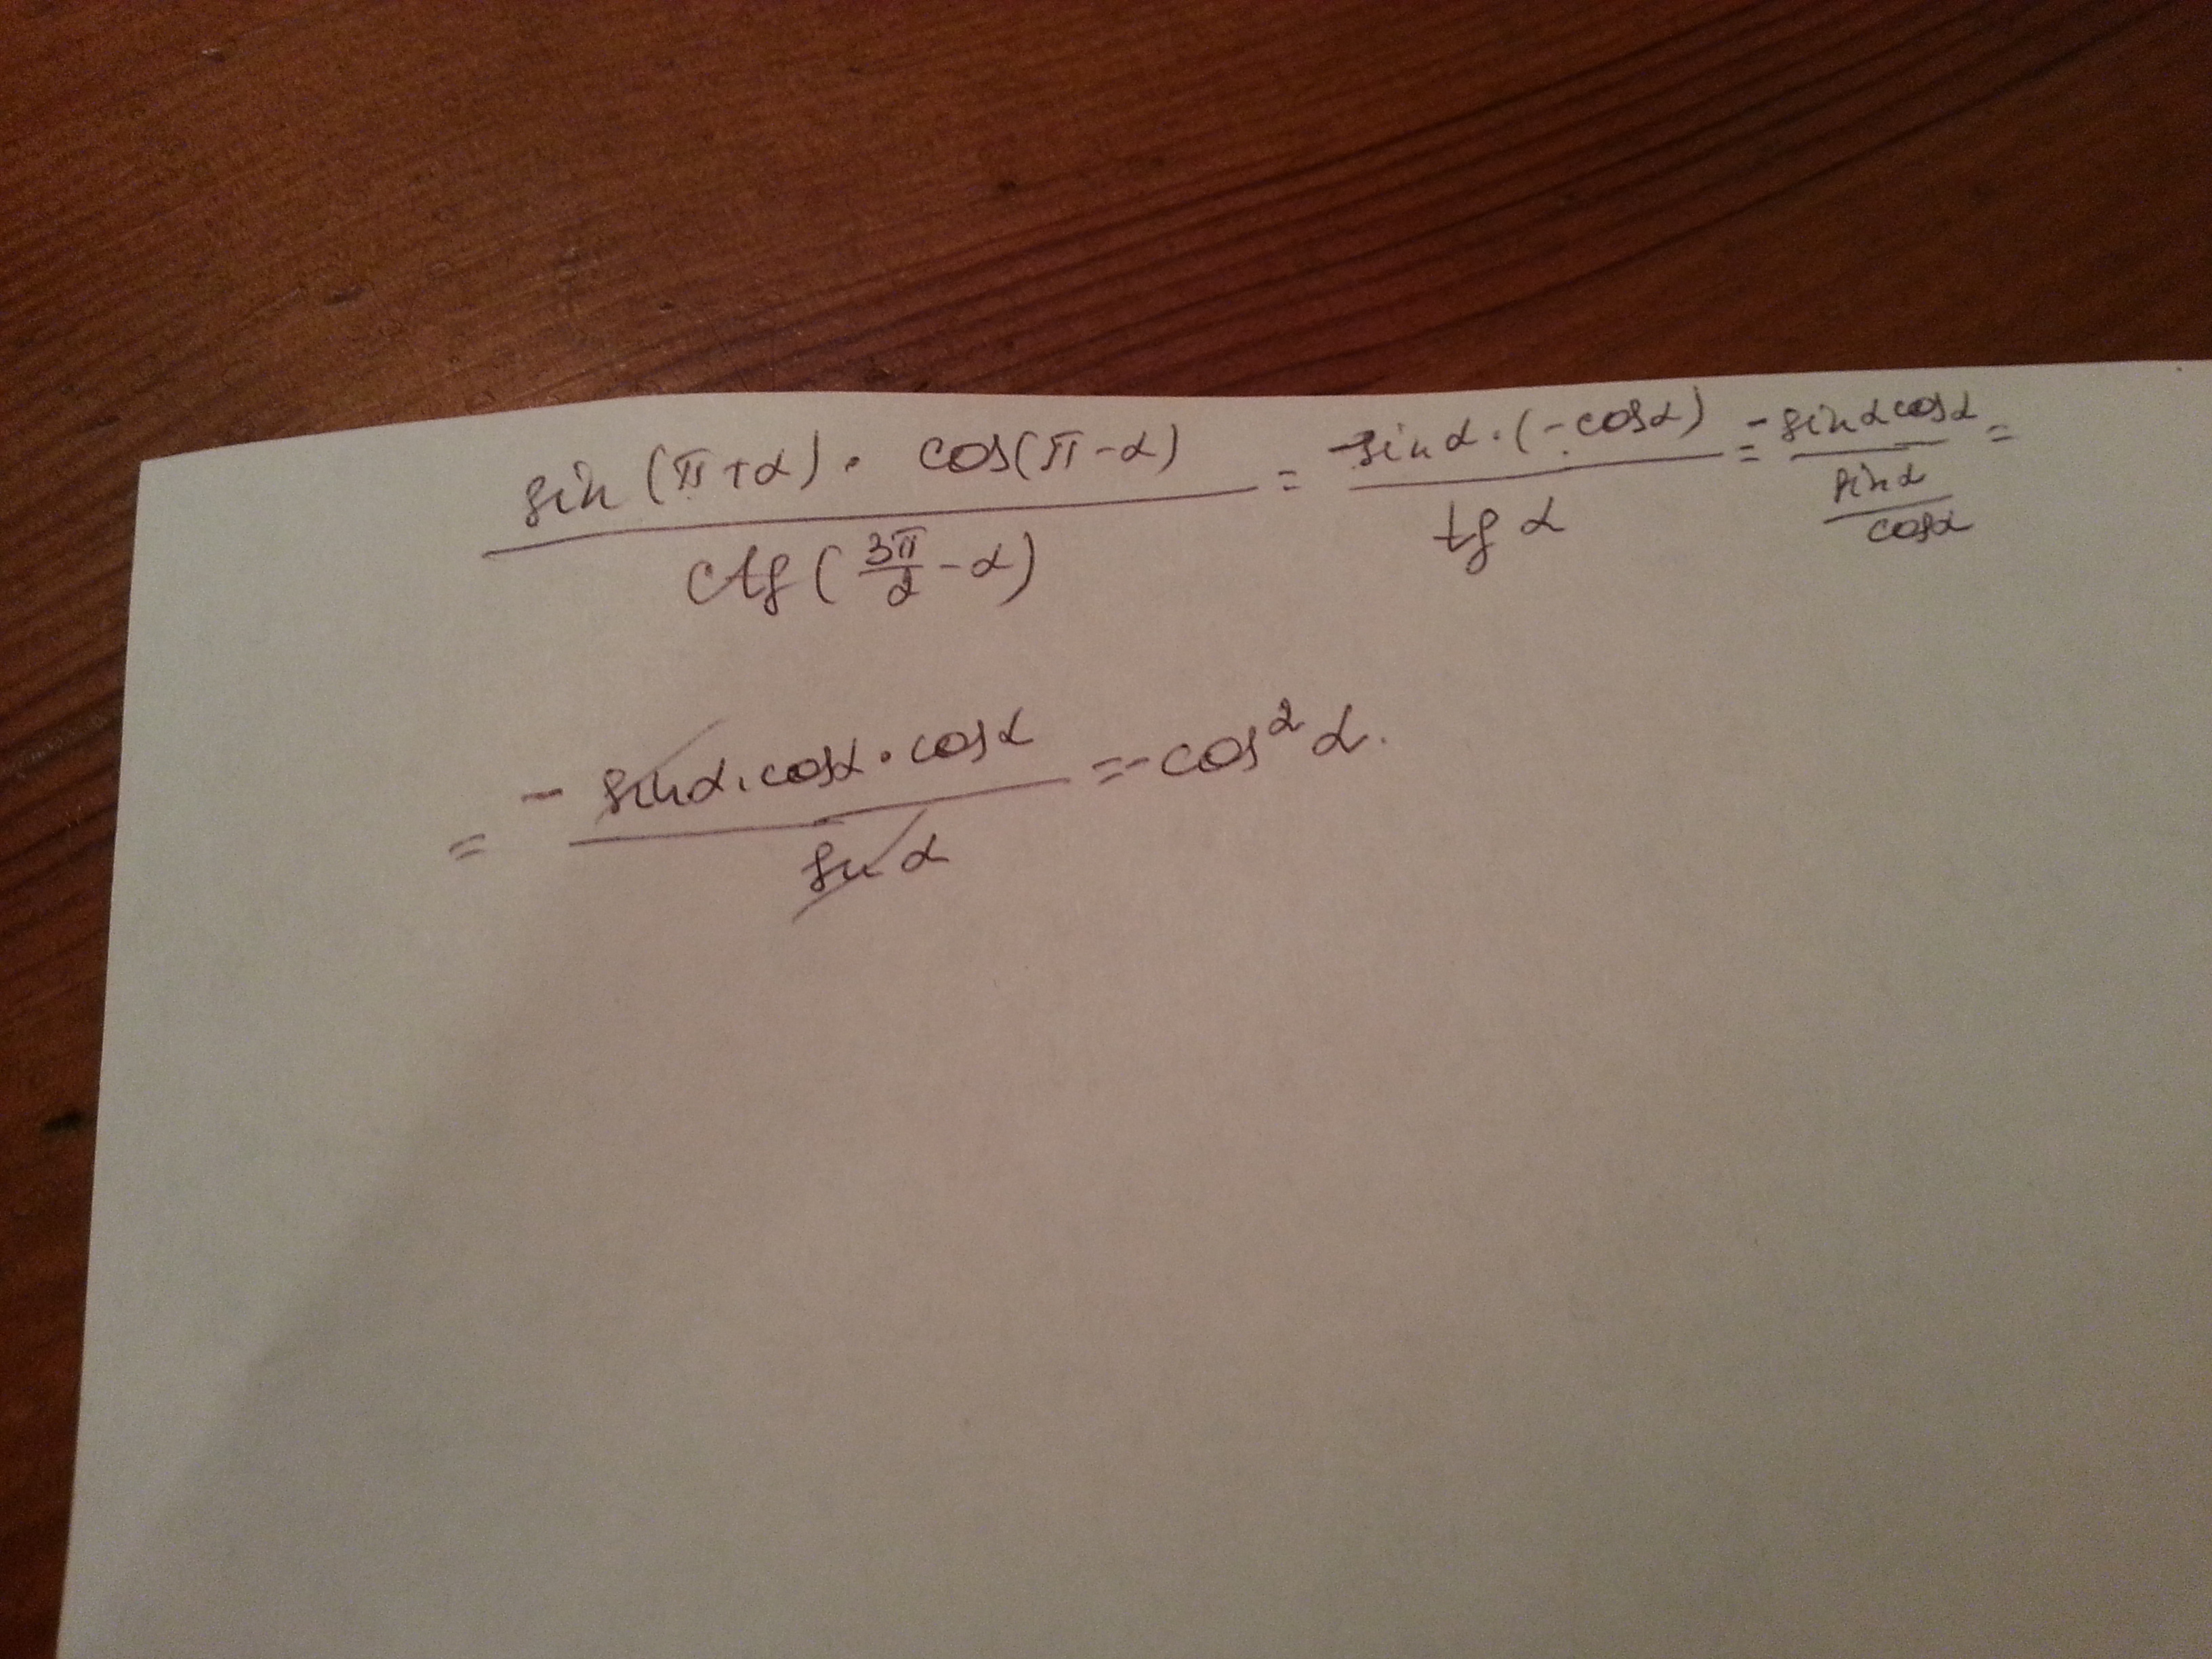 sin (π+α) · cos(π-α) / ctg (3π/2 - α) = -sin α · (-cosα) / tg α = -sinα cosα / (sinα / cosα) =
= - sinα · cosα · cosα / sin α = -cos² α.